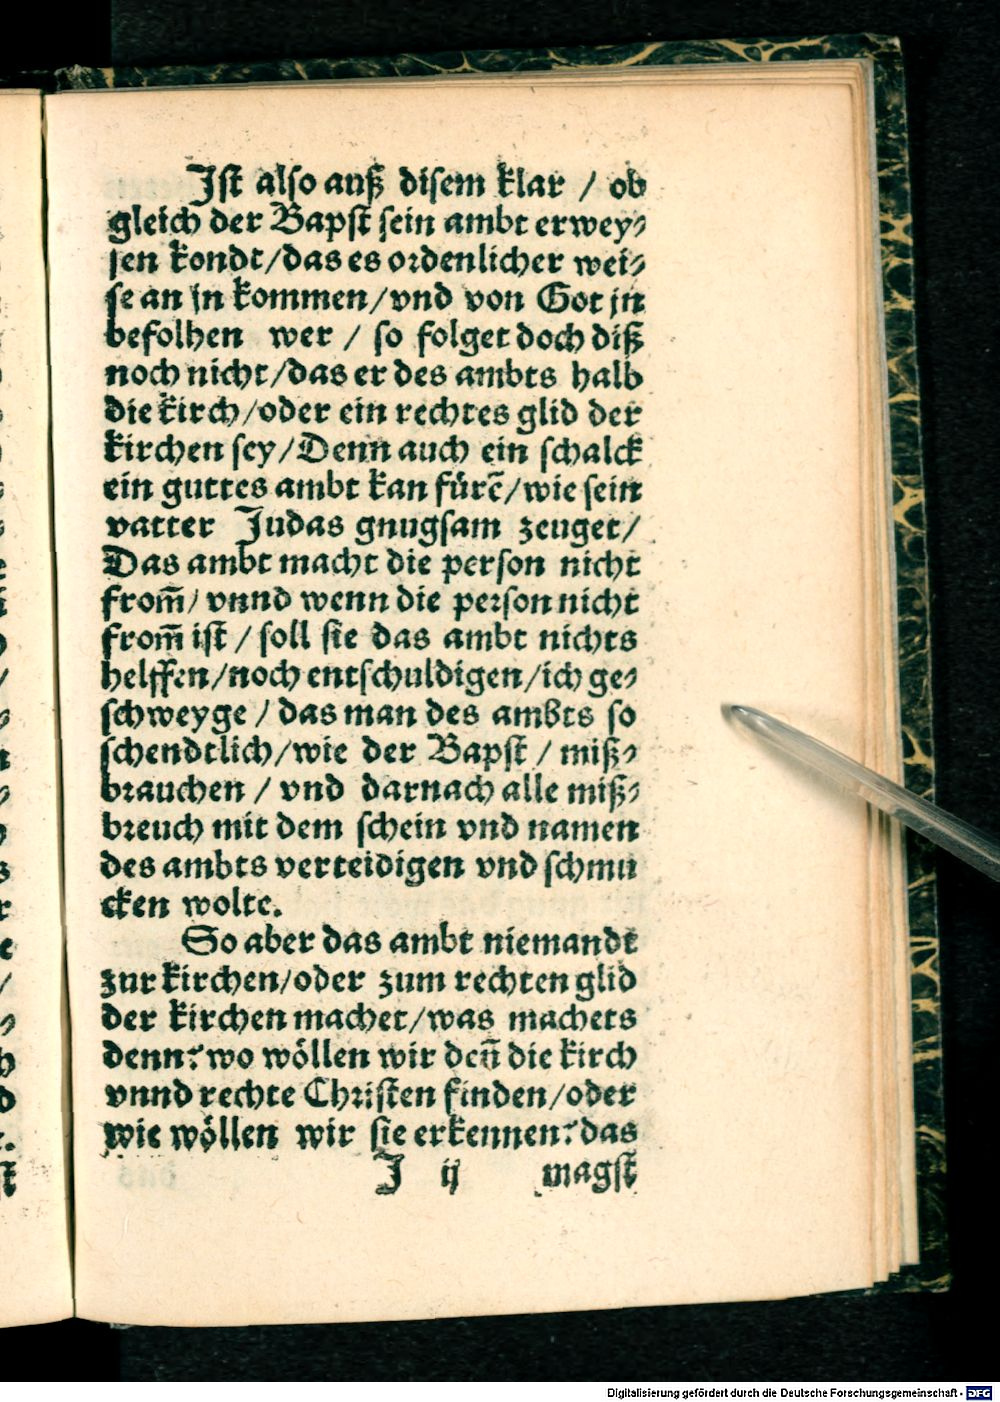 Ist also auß disem klar / ob
gleich der Bapst sein ambt erwey⸗
sen kondt/das es ordenlicher wei⸗
se an jn kommen/vnd von Got jn
befolhen wer / so folget doch diß
noch nicht/das er des ambts halb
die kirch/oder ein rechtes glid der
kirchen sey/Denn auch ein schalck
ein guttes ambt kan fürē/wie sein
vatter Judas gnugsam zeuget/
Das ambt macht die person nicht
from̃/ vnnd wenn die person nicht
from̃ ist / soll sie das ambt nichts
helffen/noch entschuldigen/ich ge⸗
schweyge / das man des ambts so
schendtlich/wie der Bapst / miß⸗
brauchen / vnd darnach alle miß⸗
breuch mit dem schein vnd namen
des ambts verteidigen vnd schmu
cken wolte.
So aber das ambt niemandt
zur kirchen/oder zum rechten glid
der kirchen machet/was machets
denn? wo wöllen wir deñ die kirch
vnnd rechte Christen finden/oder
wie wöllen wir sie erkennen? das
J ij magst
Digitalisierung gefördert durch die Deutsche Forschungsgemeinschaft - DFG